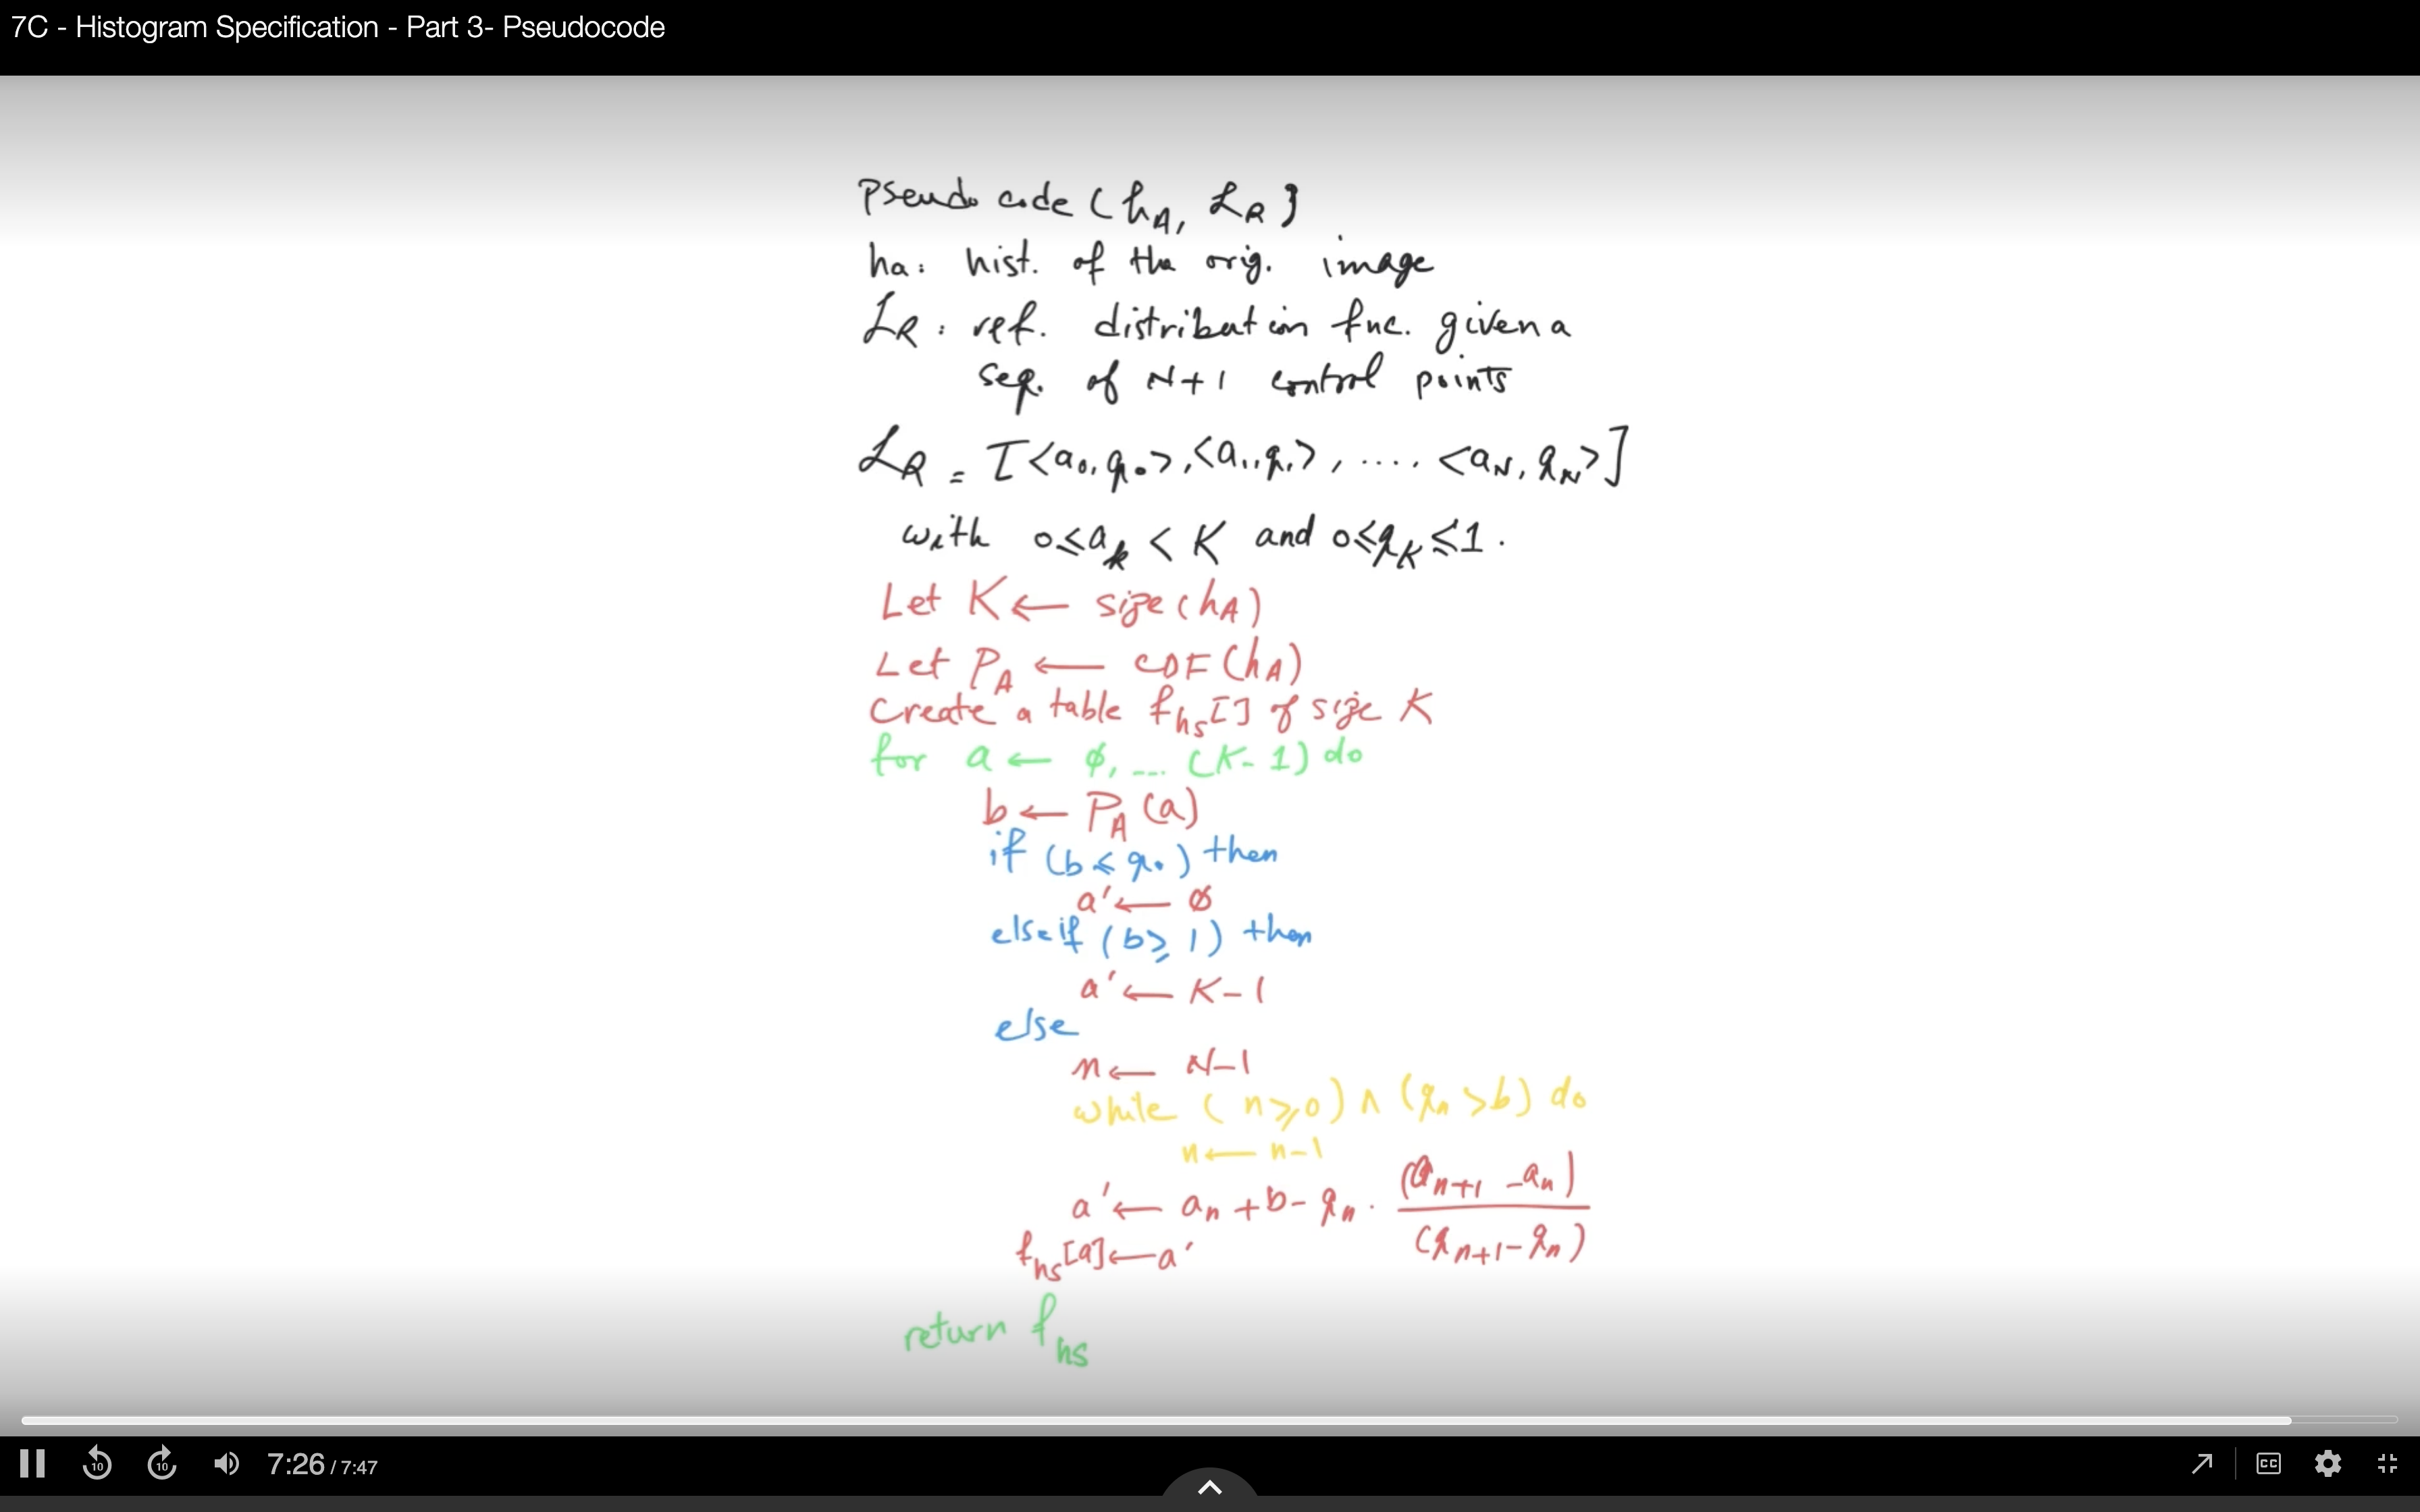 7C - Histogram Specification - Part 3- Pseudocode
Pseudo code (h_A, ℒ_R)
ha: hist. of the orig. image
ℒ_R: ref. distribution func. given a
seq. of N+1 control points
ℒ_R = [<a_0, q_0>, <a_1, q_1>, .... <a_N, q_N>]
with 0≤a_k < K and 0≤q_K≤1.
Let K ← size(h_A)
Let P_A ← CDF(h_A)
Create a table f_hs[] of size K
for a ← ϕ, ... (K-1) do
b ← P_A(a)
if (b ≤ q_0) then
a' ← ϕ
elseif (b ≥ 1) then
a' ← K-1
else
n ← N-1
while (n≥0) ∧ (q_n > b) do
n ← n-1
a' ← a_n + b - q_n · (a_n+1 - a_n) / (q_n+1 - q_n)
f_hs[a] ← a'
return f_hs
10 10 7:26 / 7:47 CC